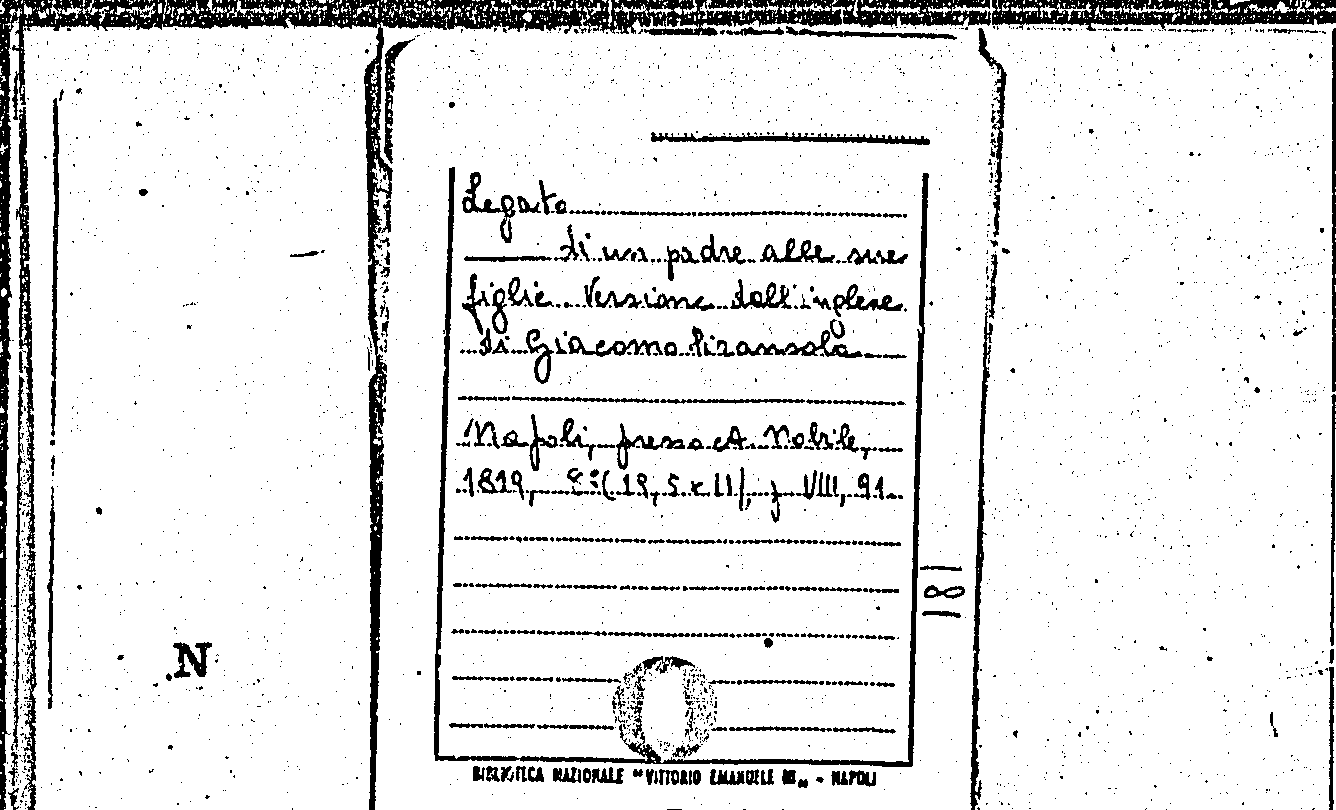 Legato
di un padre alle sue
figlie. Versione dall'inglese
di Giacomo
Napoli, presso A. Nobile,
1819, 8° (19,5 x 11), p. VIII, 91.
181
N
BIBLIOTECA NAZIONALE "VITTORIO EMANUELE III" - NAPOLI